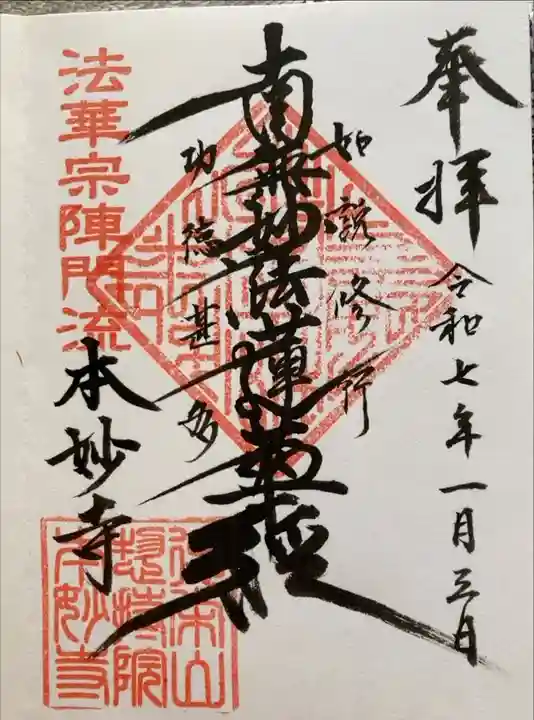 奉拝
令和七年一月三日
如説修行
南無妙法蓮華経
功徳甚多
法華宗陣門流
本妙寺
本妙寺